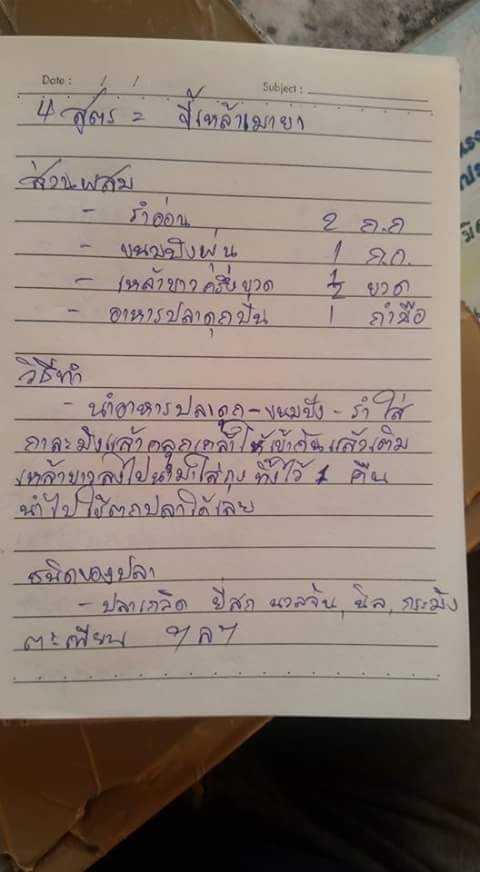 Date : / /
Subject :
4 สูตร = ขี้เหล้าเมายา
ส่วนผสม
- รำอ่อน 2 ก.ก
- ขนมปังผุ่น 1 ก.ก.
- เหล้าขาวครึ่งขวด 1/2 ขวด
- อาหารปลาดุกปั่น 1 กำมือ
วิธีทำ
- นำอาหารปลาดุก - ขนมปัง - รำ ใส่
กาละมังแล้วคลุกเคล้าให้เข้ากันแล้วเติม
เหล้าขาวลงไปนำมาใส่ถุง ทิ้งไว้ 1 คืน
นำไปใช้ตกปลาได้เลย
ชนิดของปลา
- ปลาเกล็ด ยี่สก นวลจัน, นิล, กระมัง
ตะเพียน ฯลฯ